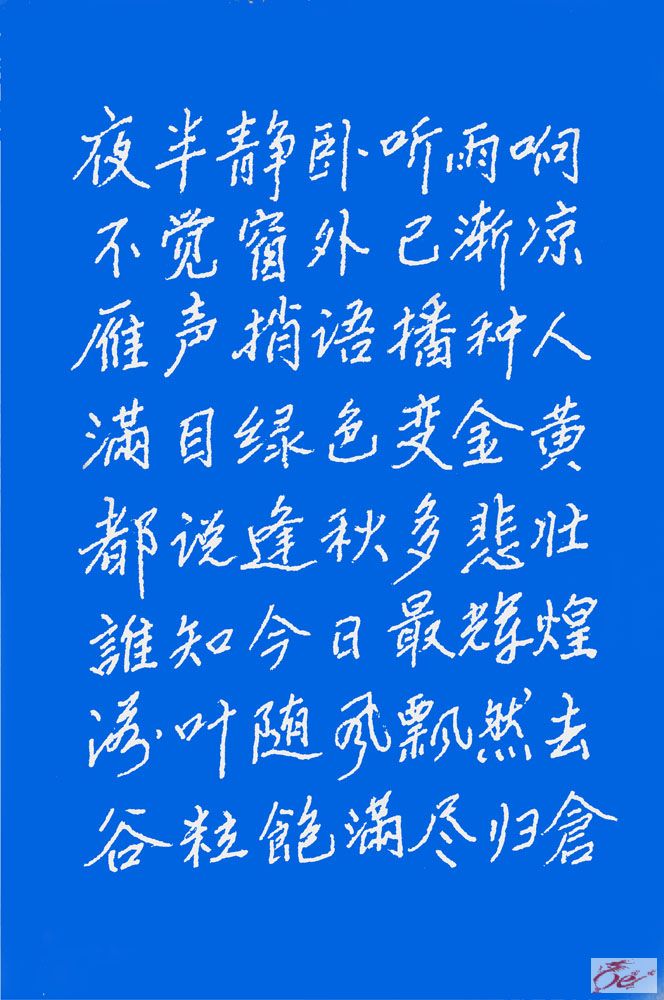 夜半静卧听雨响
不觉窗外已渐凉
雁声捎语播种人
满目绿色变金黄
都说逢秋多悲壮
誰知今日最辉煌
落叶随风飘然去
谷粒飽满尽归倉